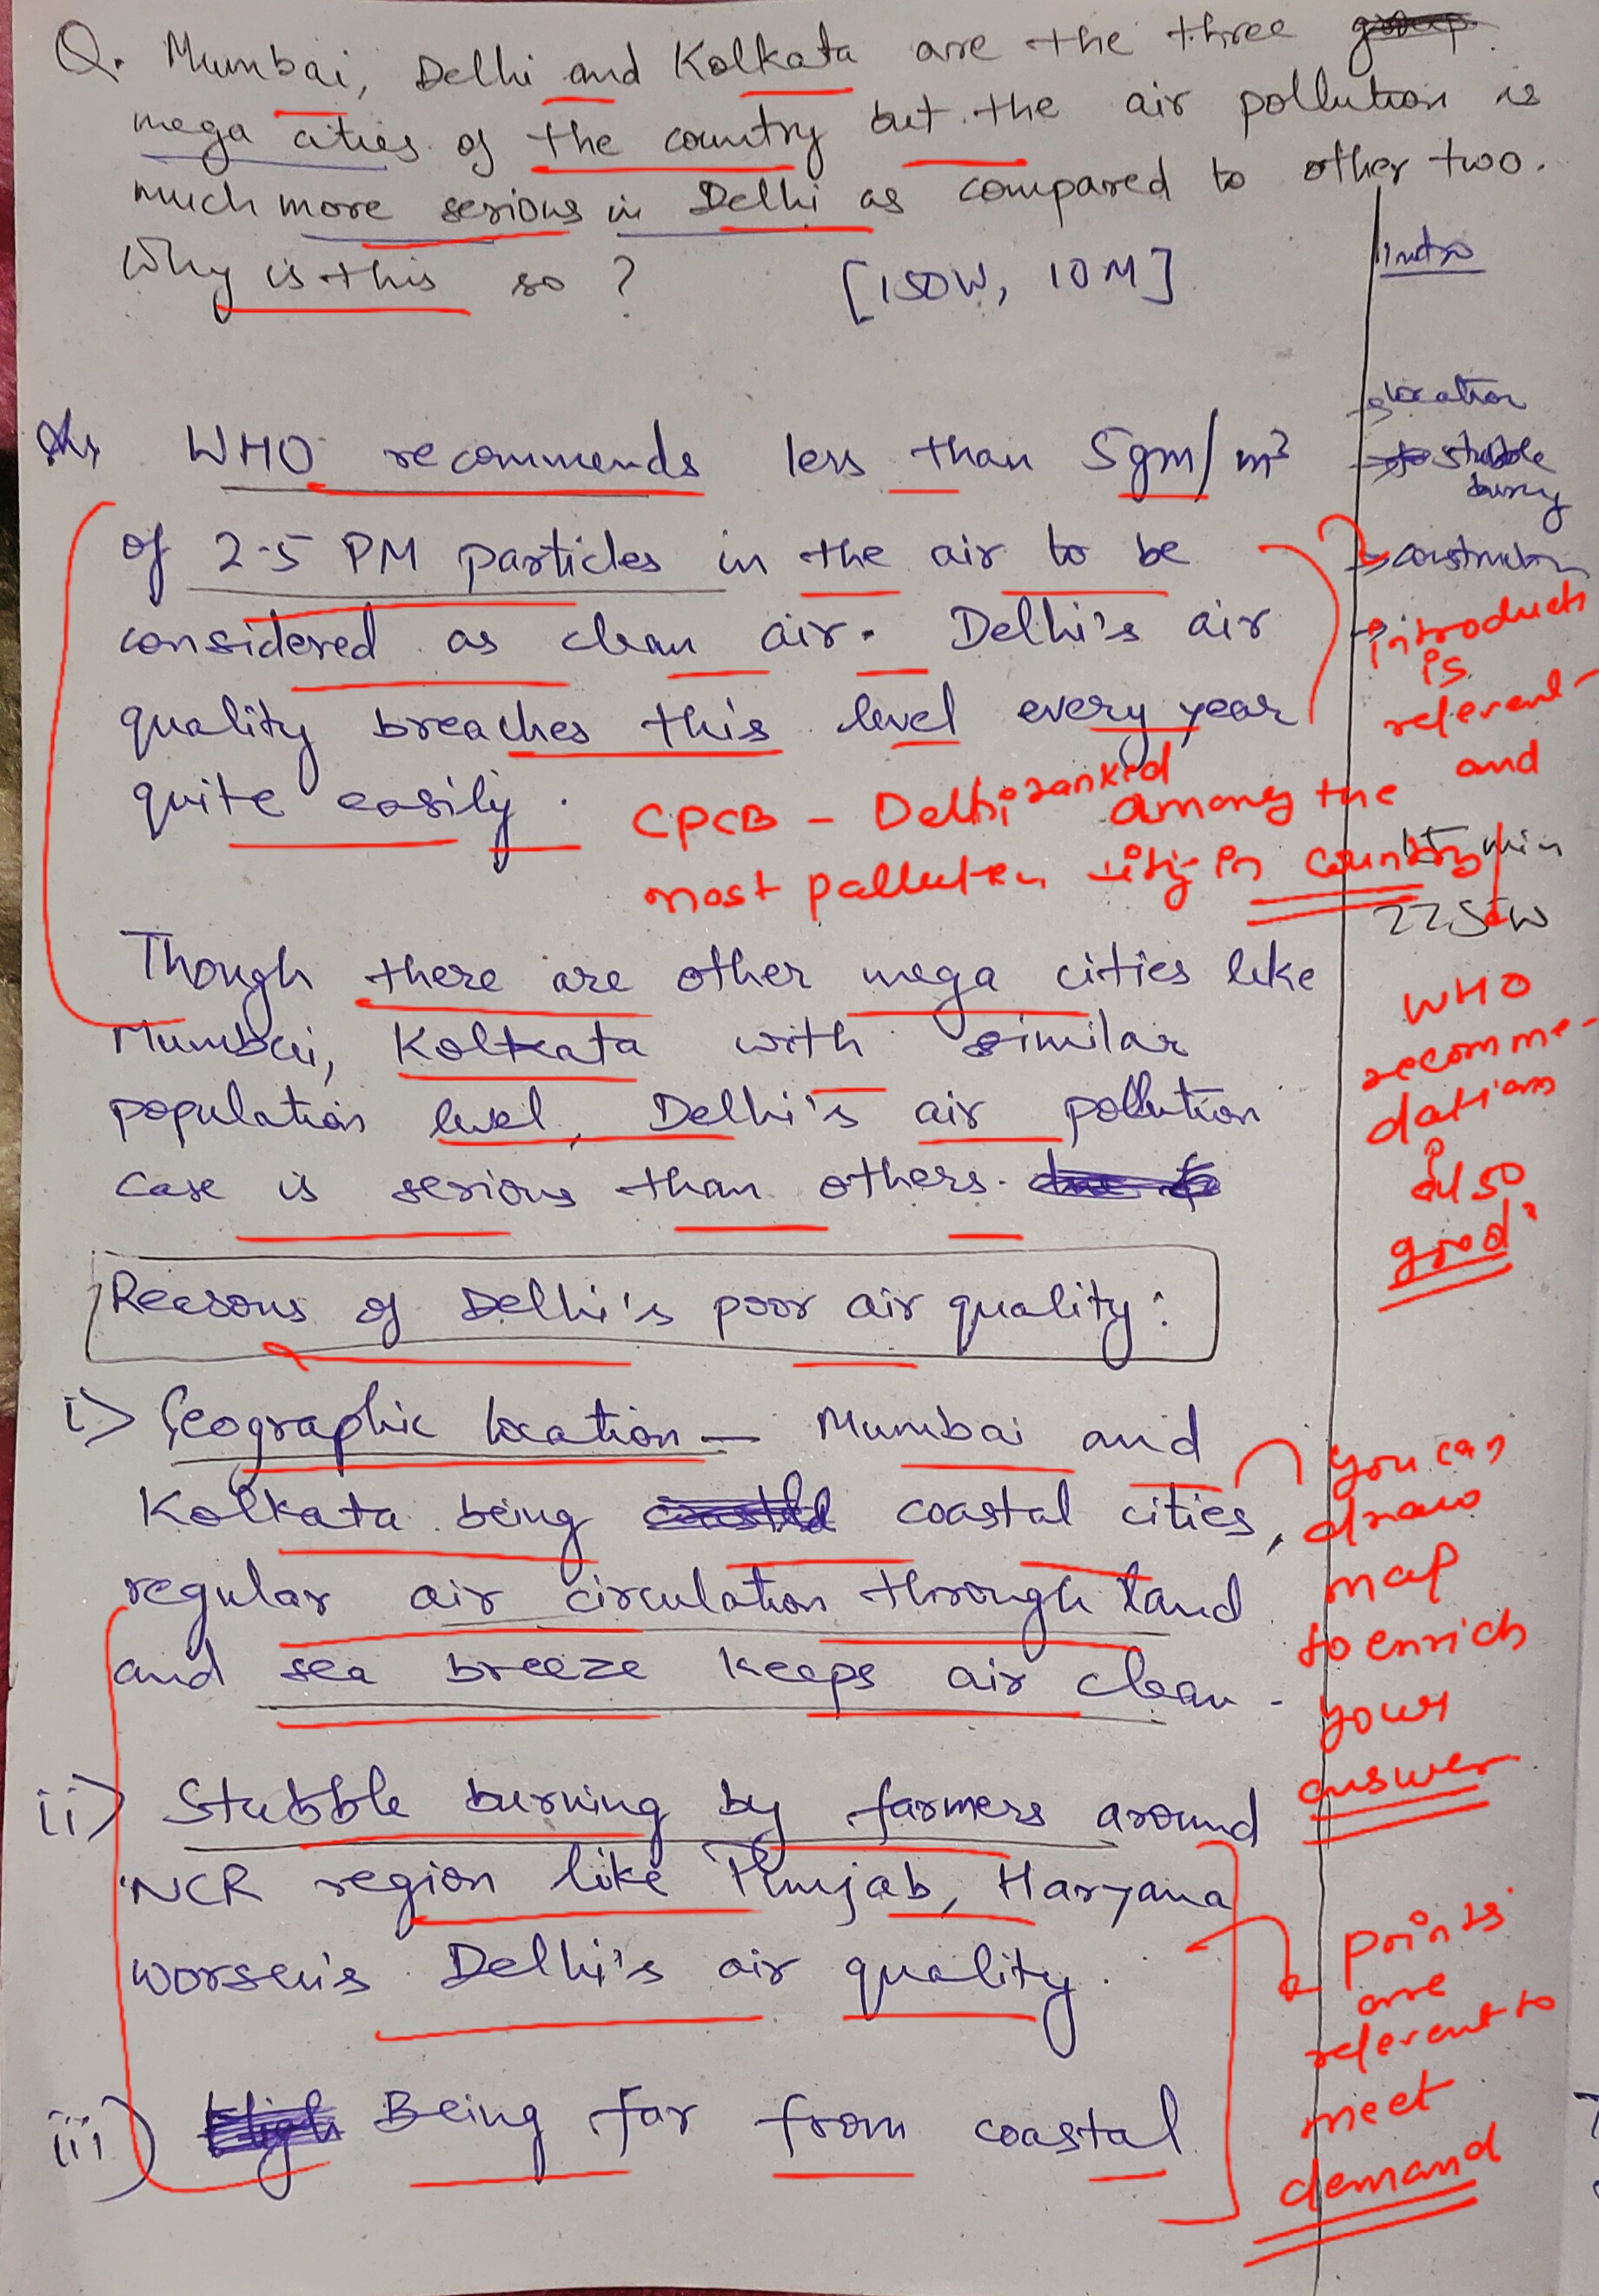 Q. Mumbai, Delhi and Kolkata are the three
mega cities of the country but the air pollution is
much more serious in Delhi as compared to other two.
Why is this so ? [150W, 10M]
Intro
location
stubble
burning
construction
Ans WHO recommends less than 5gm/m³
of 2.5 PM particles in the air to be
considered as clean air. Delhi's air
quality breaches this level every year
quite easily.
introduction
is
relevant
and
CPCB - Delhi ranked among the
most polluten city in country
15 min
225W
WHO
recomme-
dations
also
good
Though there are other mega cities like
Mumbai, Kolkata with similar
population level, Delhi's air pollution
case is serious than others.
Reasons of Delhi's poor air quality:
i> Geographic location - Mumbai and
Kolkata being coastal cities,
regular air circulation through land
and sea breeze keeps air clean.
you can
draw
map
to enrich
your
answer
ii) Stubble burning by farmers around
NCR region like Punjab, Haryana
worsen's Delhi's air quality.
iii) Being far from coastal
points
are
relevant to
meet
demand